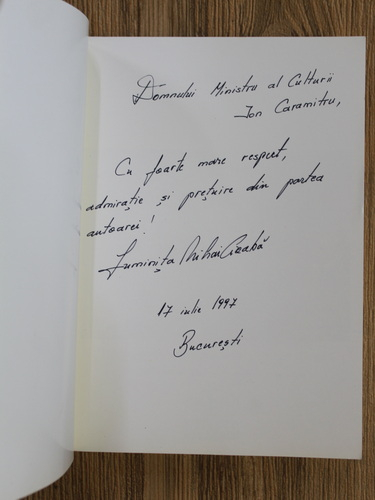 Domnului Ministru al Culturii
Ion Caramitru,
Cu foarte mare respect,
admirație și prețuire din partea
autoarei!
Luminița Mihai Cioabă
17 iulie 1997
București